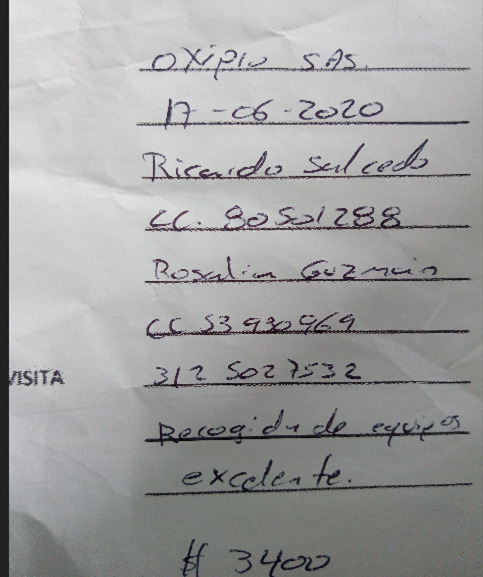 OXipio SAS.
17-06-2020
Ricardo Salcedo
CC. 80501288
Rosalia Guzman
CC 53 930969
VISITA 312 5027532
Recogida de equipos
excelente.
# 3400